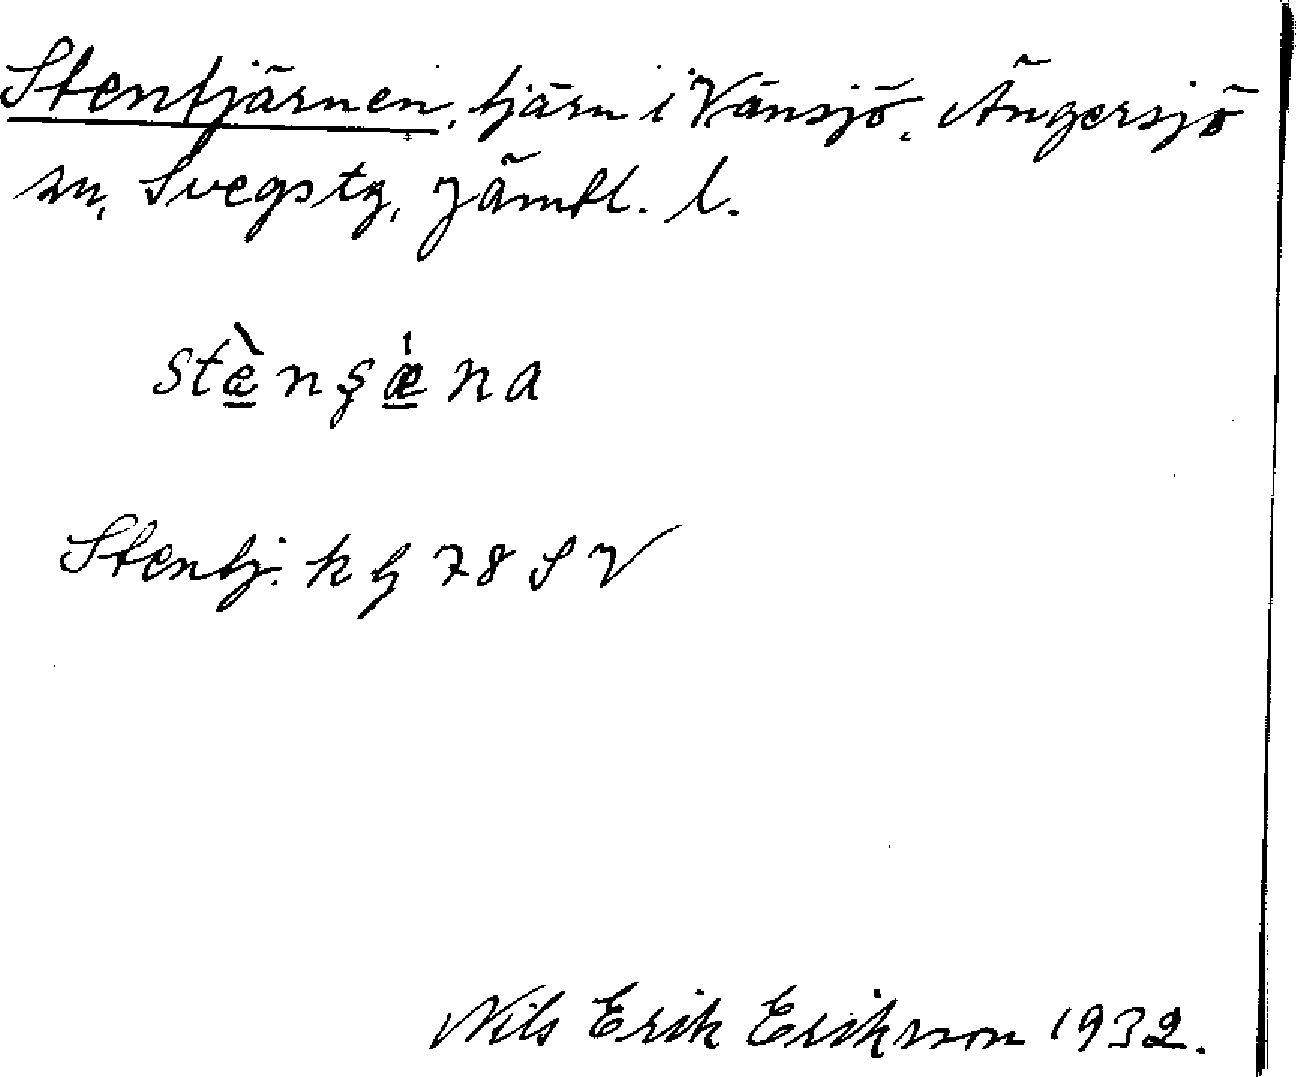 Stentjärnen, tjärn i Vänsjö, Ängersjö
sn, Svegs tg, Jämtl. l.
stæ̀nʂǽna
Stentj. k bl 78 S V
Nils Erik Eriksson 1932.